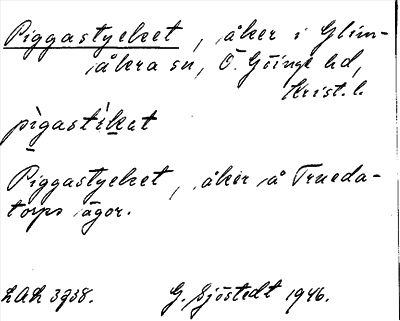 Piggastycket, åker i Glim-
åkra sn, Ö. Göinge hd,
Krist. l.
pìgastíkat
Piggastycket, åker å Trueda-
torps ägor.
LAL 3938. G. Sjöstedt 1946.